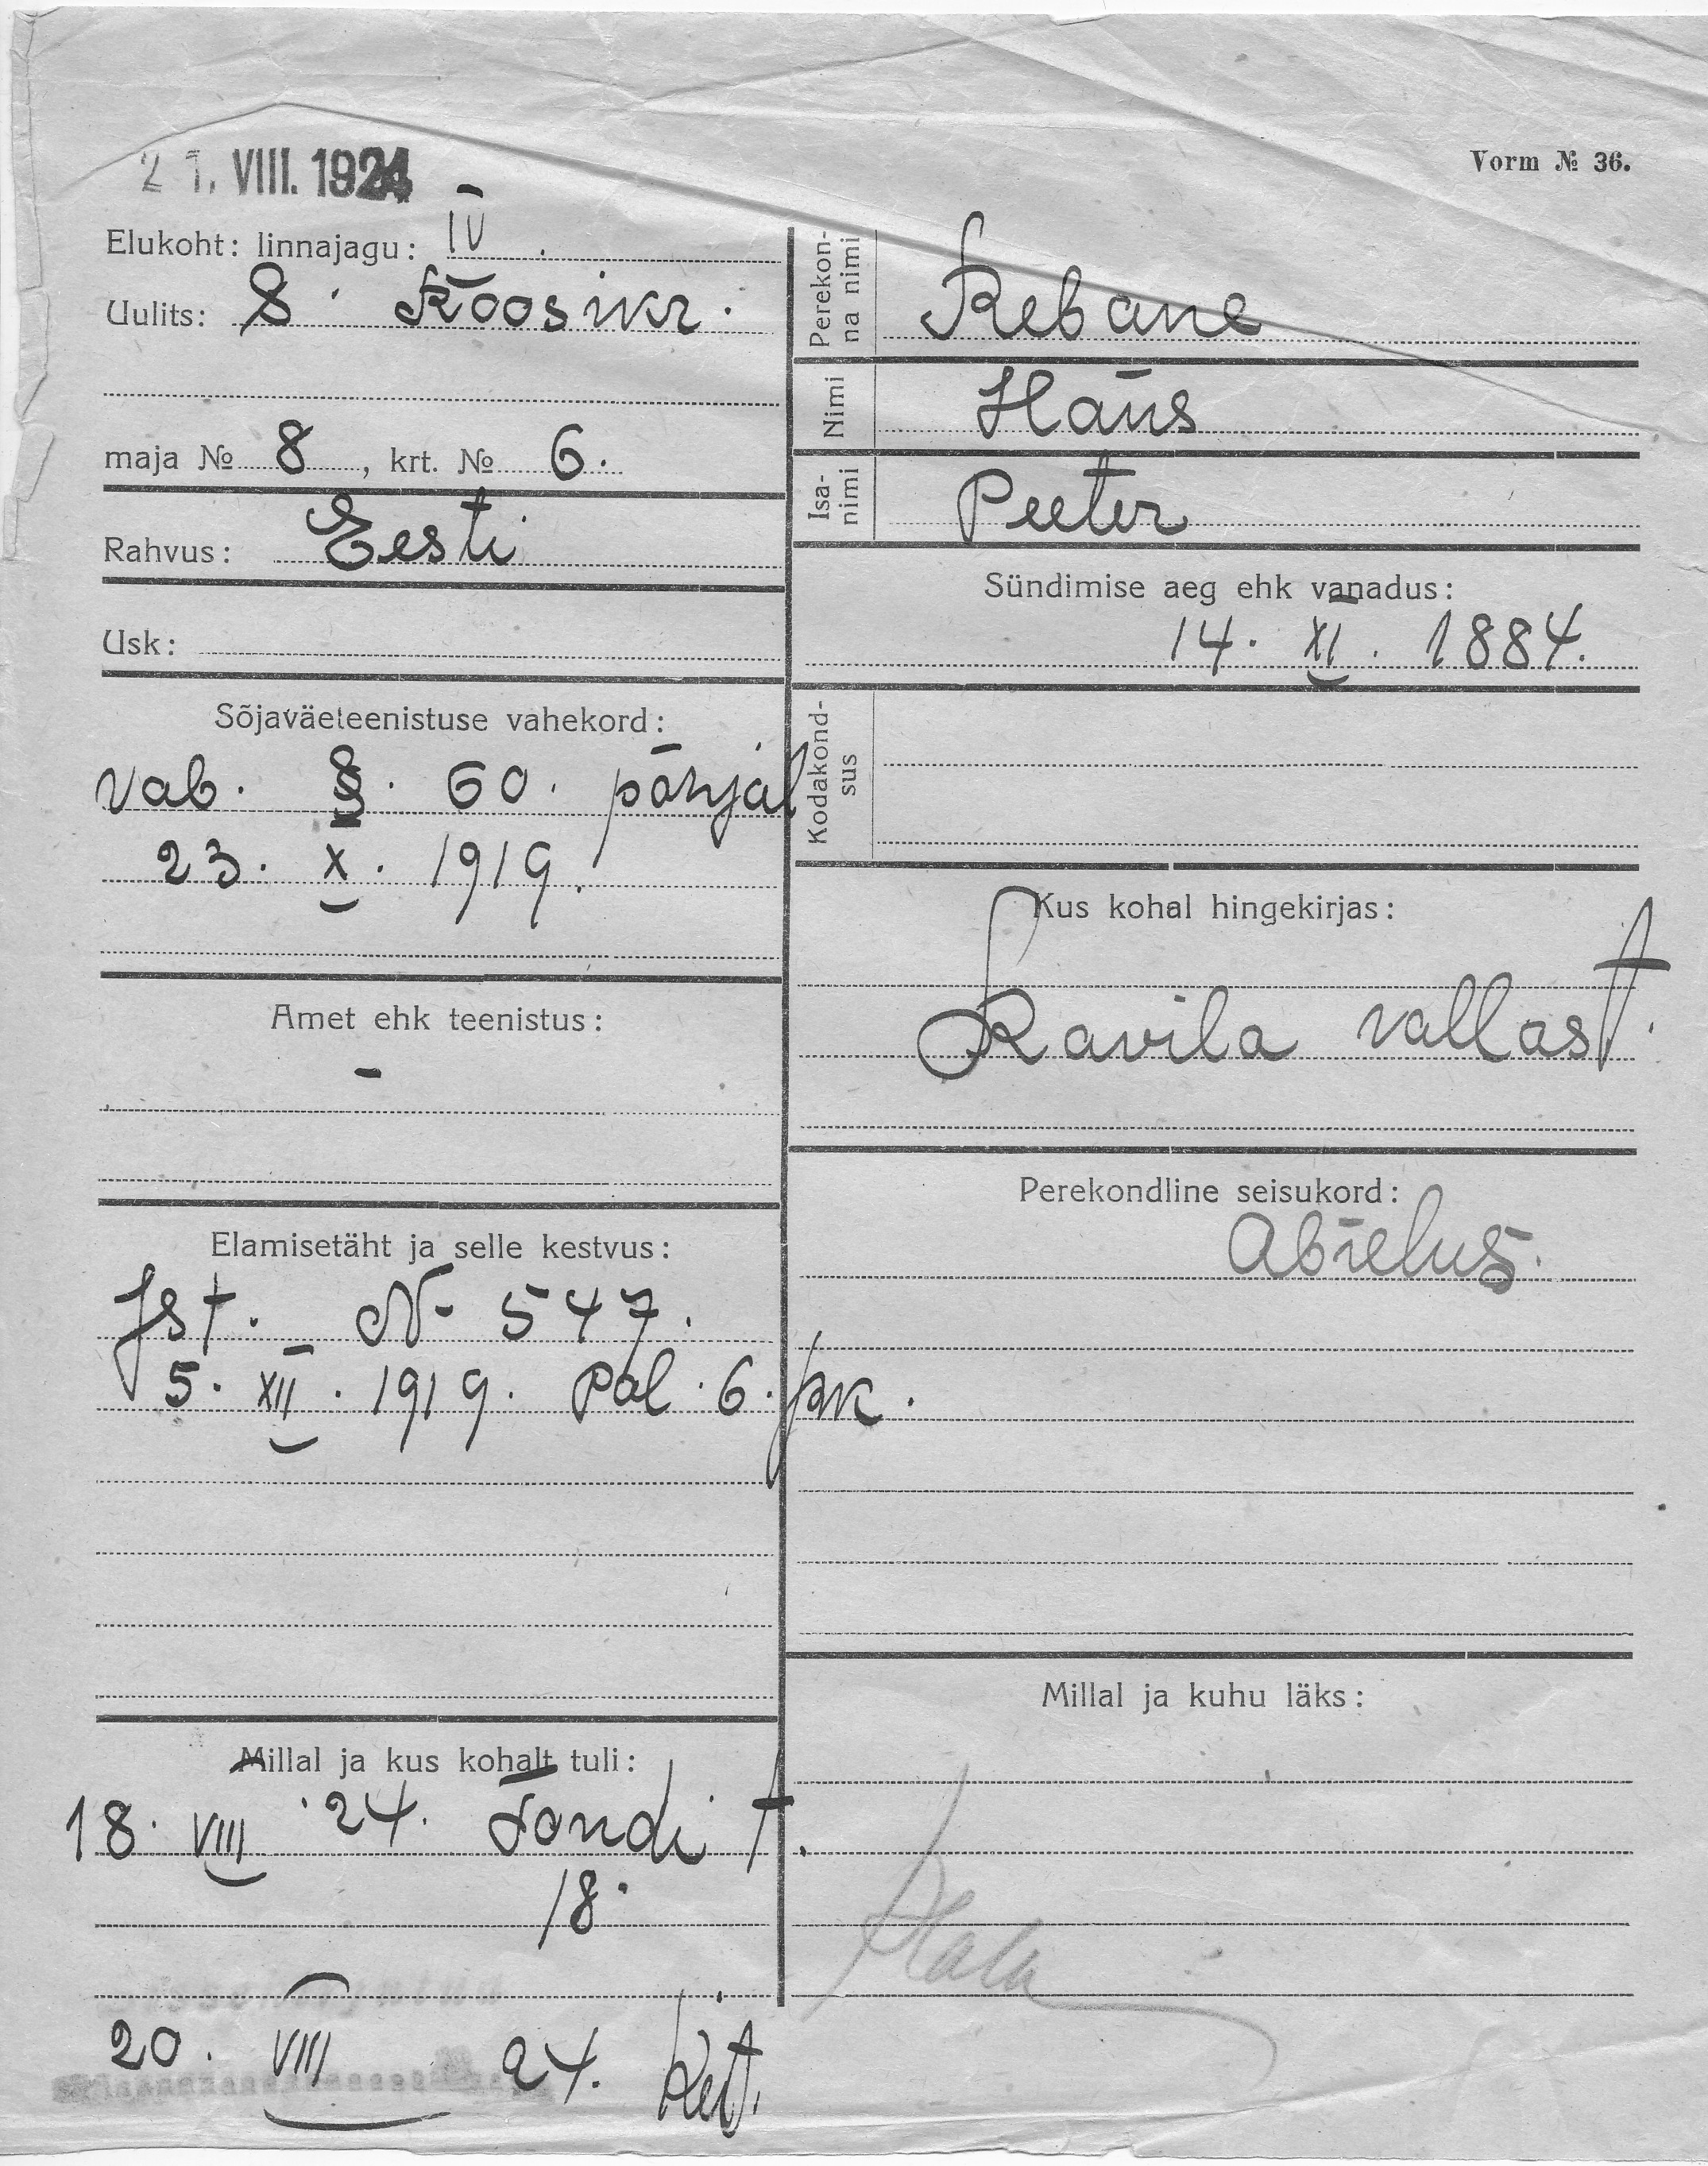 21. VIII. 1924
Vorm № 36.
Elukoht: linnajagu: IV.
Uulits: S. Roosikr.
maja № 8, krt. № 6.
Rahvus: Eesti
Usk:
Sõjaväeteenistuse vahekord:
vab. §. 60. põhjal
23. X. 1919.
Amet ehk teenistus:
-
Elamisetäht ja selle kestvus:
Ist. N- 547.
5. XII. 1919. Pal. 6. jsk.
Millal ja kus kohalt tuli:
18. VIII '24. Tondi t.
18.
20. VIII 24.
Perekonna nimi Rebane
Nimi Hans
Isanimi Peeter
Sündimise aeg ehk vanadus:
14. XI. 1884.
Kodakondsus
Kus kohal hingekirjas:
Ravila vallast.
Perekondline seisukord:
Abielus.
Millal ja kuhu läks: